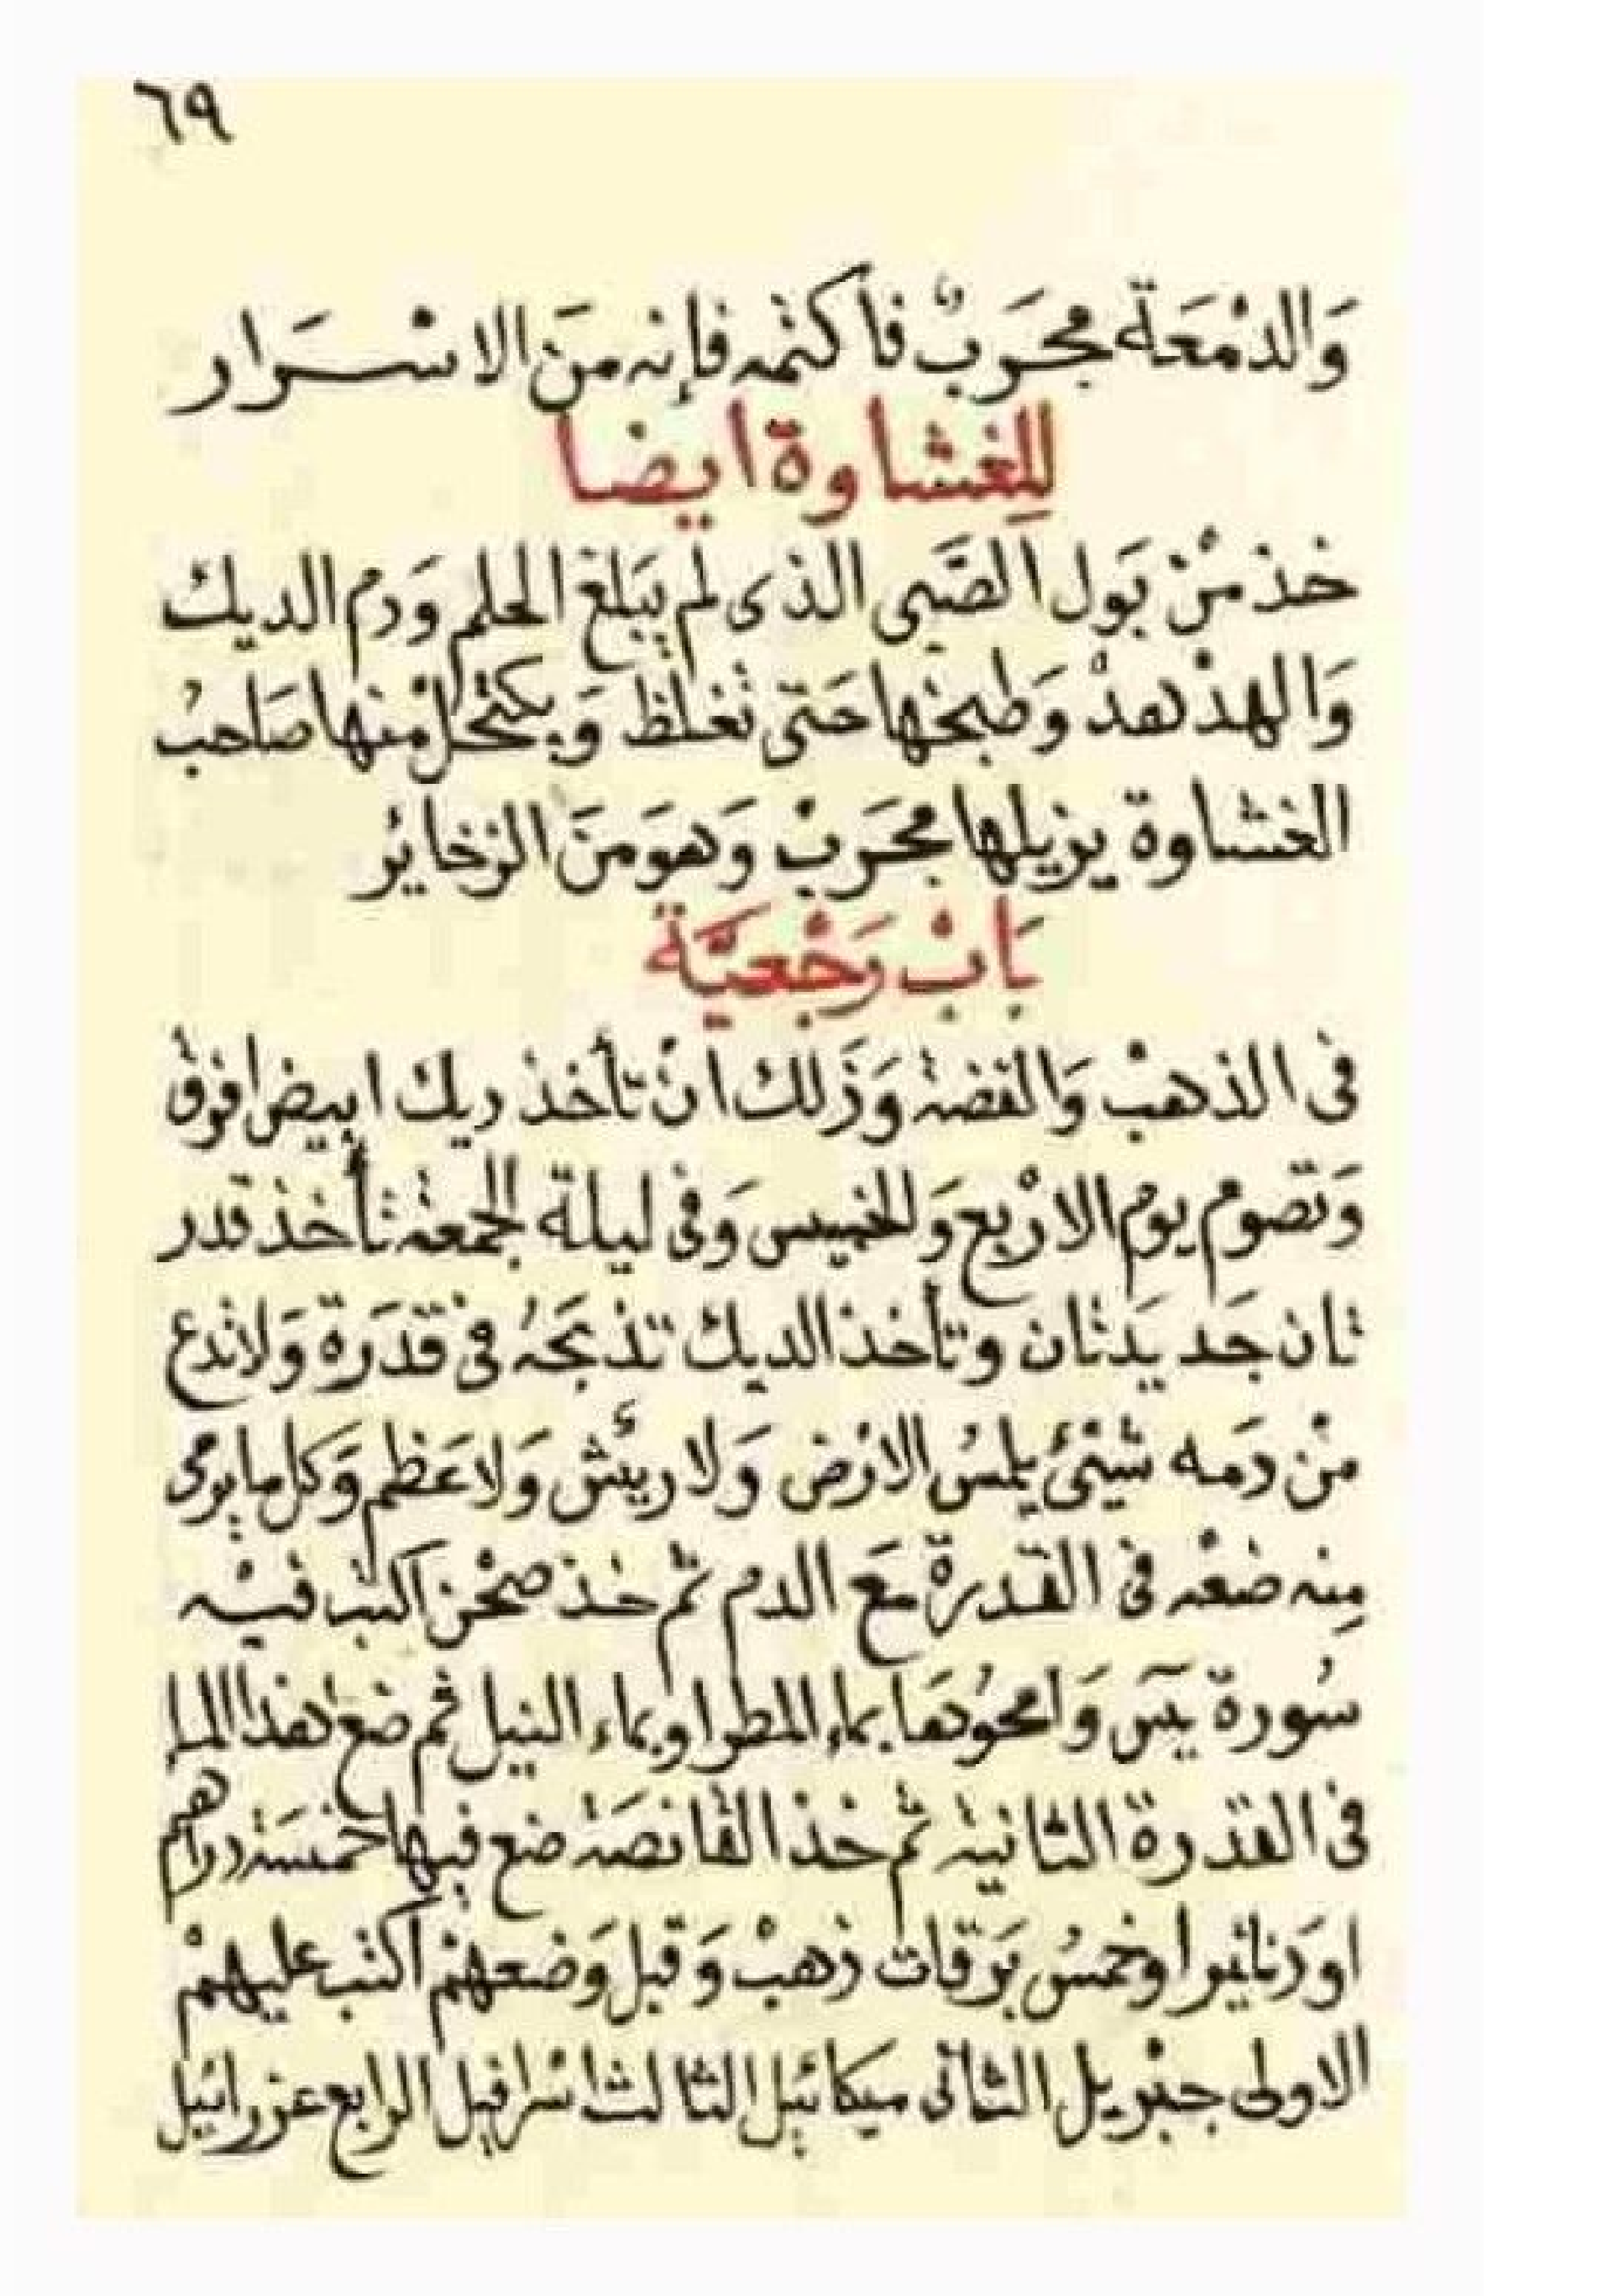 ٦٩
وَالدمْعَة مجَربْ فأكتمه فإنه منَ الاسْرَار
لِلغشاوة ايضا
خذ منْ بَول الصَّبى الذى لم يَبلغ الحلم وَدم الديك
وَالهدْهدْ وَطبخها حَتى تغلظ وَيكتحل منها صَاحبْ
الغشاوة يزيلها مجَربْ وَهوَ منَ الزخاير
بَابْ رَجْعيَّة
فى الذهبْ وَالفضة وَزَلك انْ تأخذ ديك ابيض افرق
وَتصوم يوم الارْبع وَالخميس وَفى ليلة الجمعة تأخذ قدر
تان جَديدَتان وتأخذ الديك تذبحَهُ فى قدَرة وَلاتدع
منْ دَمه شيْئ يلمسُ الارْض وَلا ريْش وَلاعَظم وَكل مايرمى
مِنه ضعْه فى القدرة مَع الدم ثم خذ صحْن اكتب فيْه
سُورة يسَ وَامحوُهَا بماء المطر اوبماء النيل ثم ضع هذا الماء
فى القدرة الثانية ثم خذ القانصَة ضع فيها خمسَة دراهم
اودَنانير اوخمسُ بَرقات ذهبْ وَقبل وَضعهمْ اكتب عليهمْ
الاولى جبْريل الثانى ميكائيل الثالث اسْرافيل الرابع عزرائيل